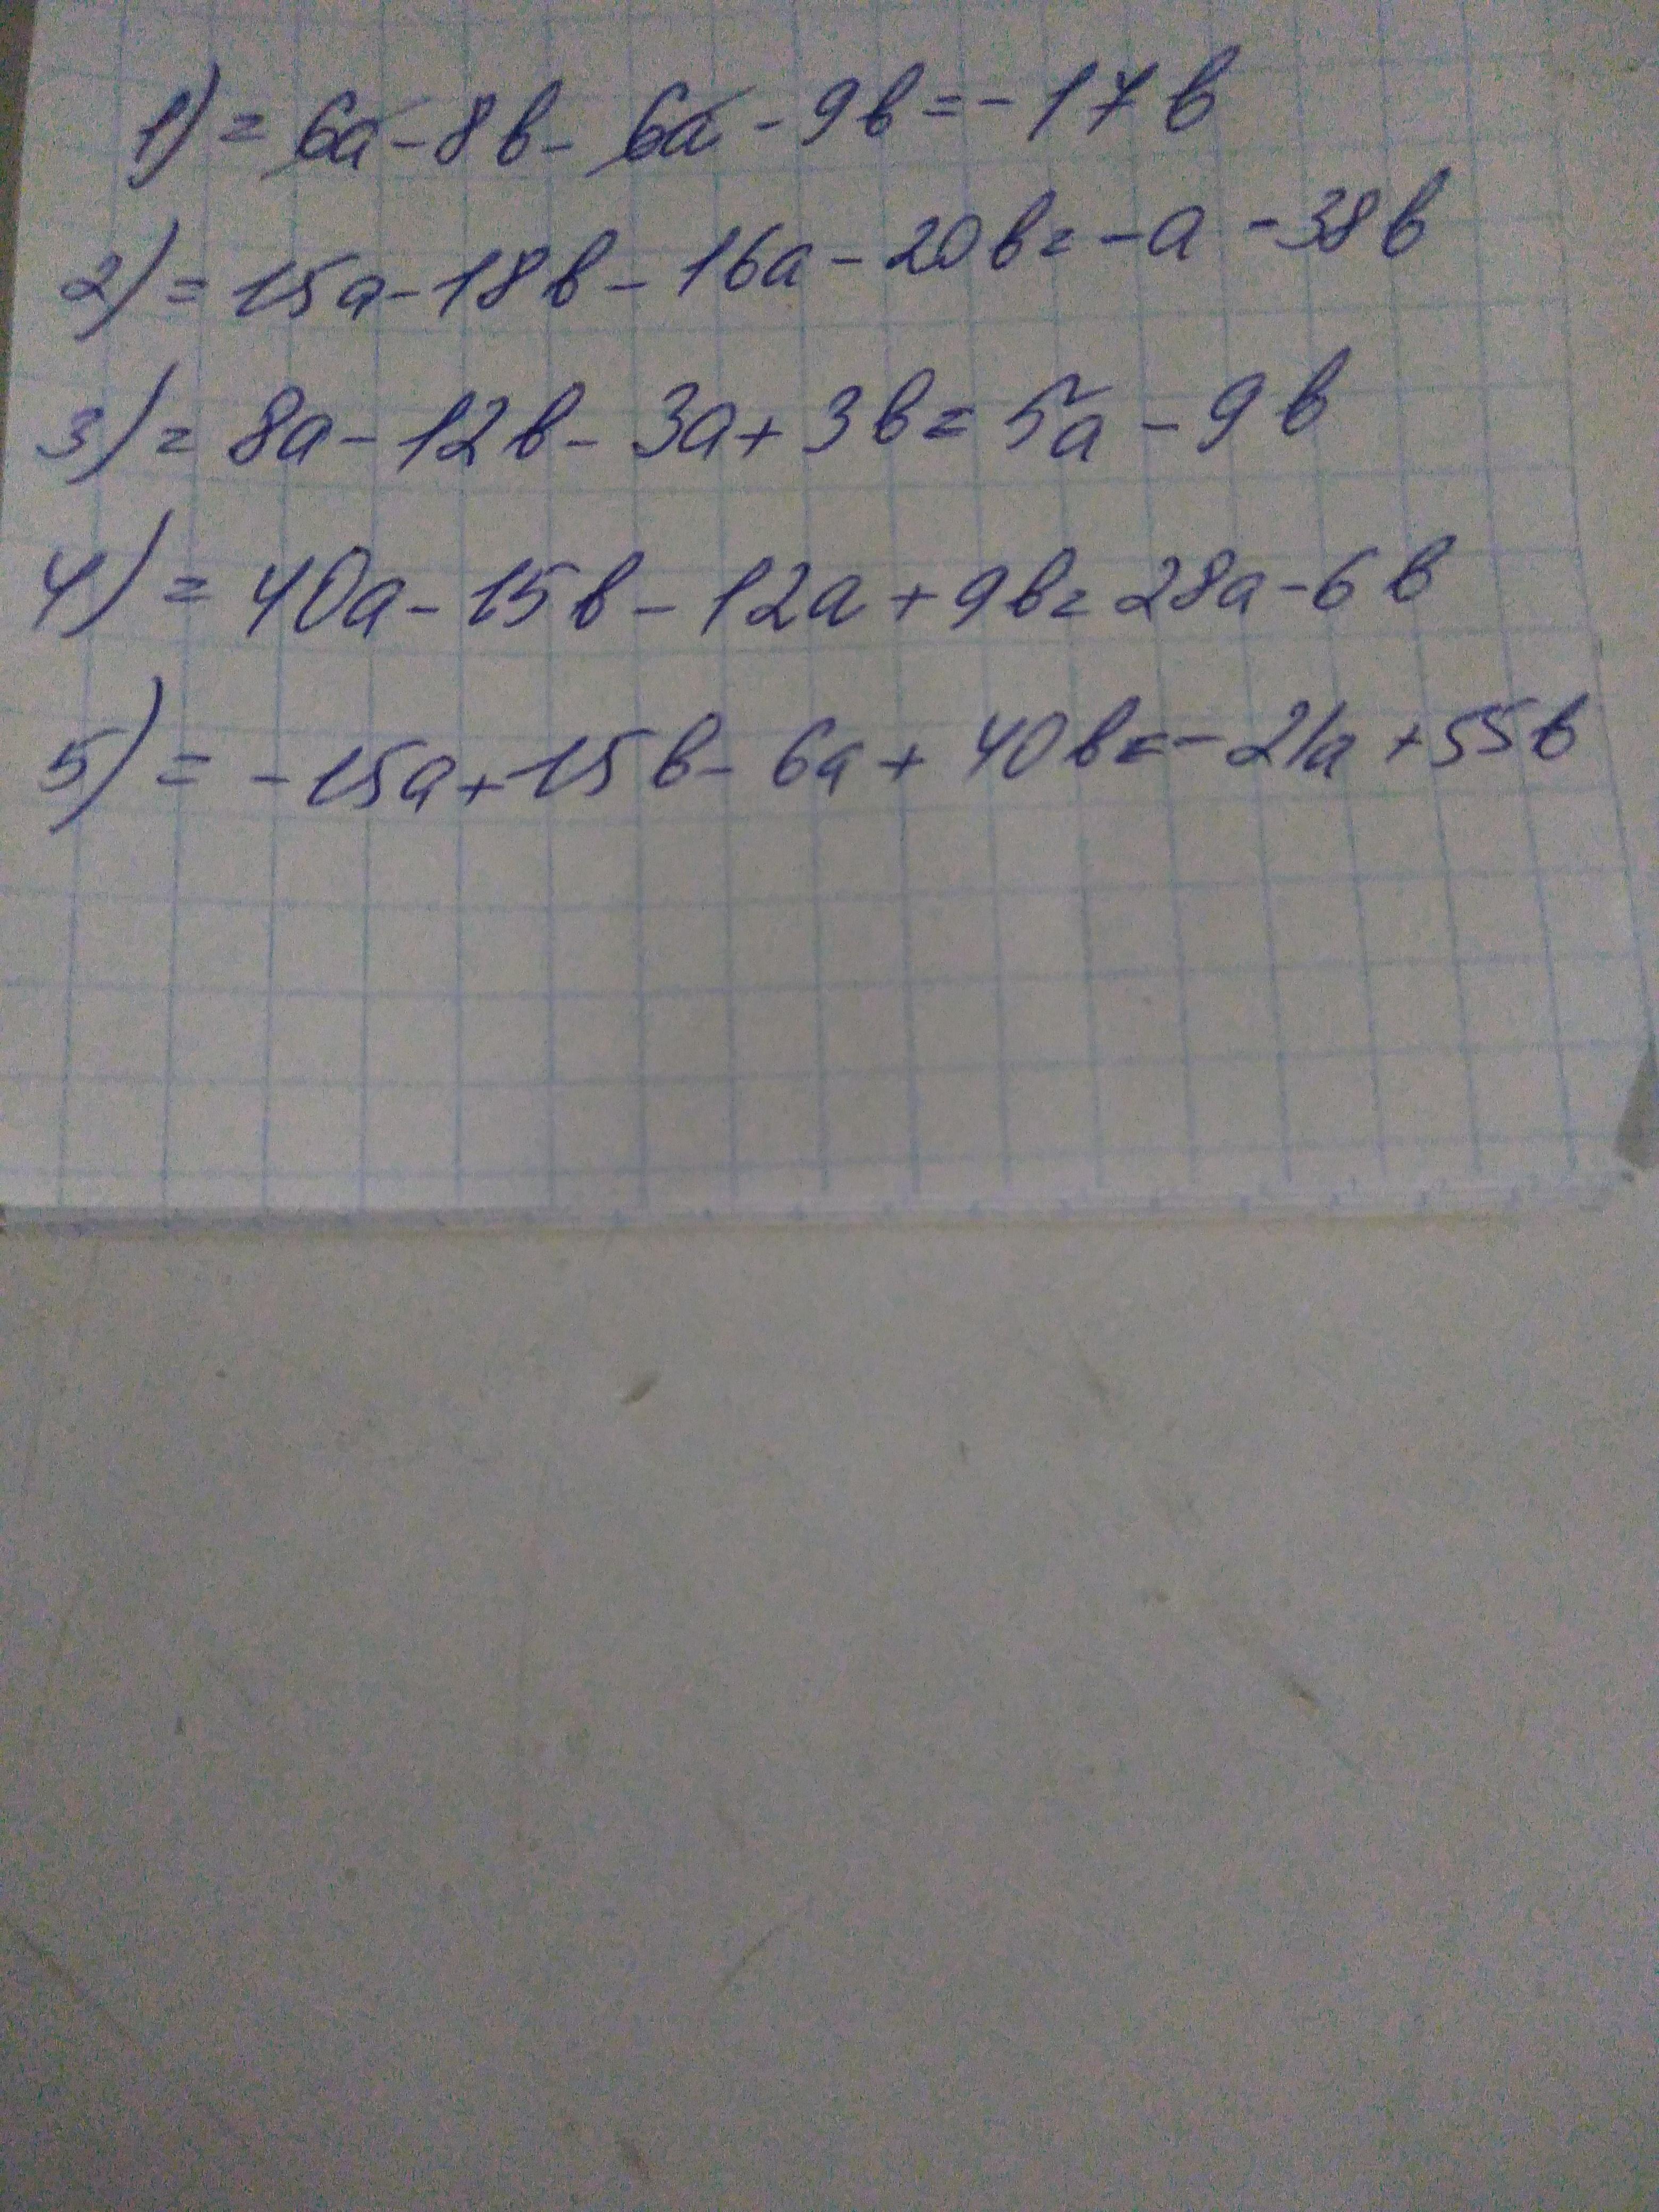 1) = 6a - 8b - 6a - 9b = - 17b
2) = 15a - 18b - 16a - 20b = - a - 38b
3) = 8a - 12b - 3a + 3b = 5a - 9b
4) = 40a - 15b - 12a + 9b = 28a - 6b
5) = - 15a + 15b - 6a + 40b = - 21a + 55b